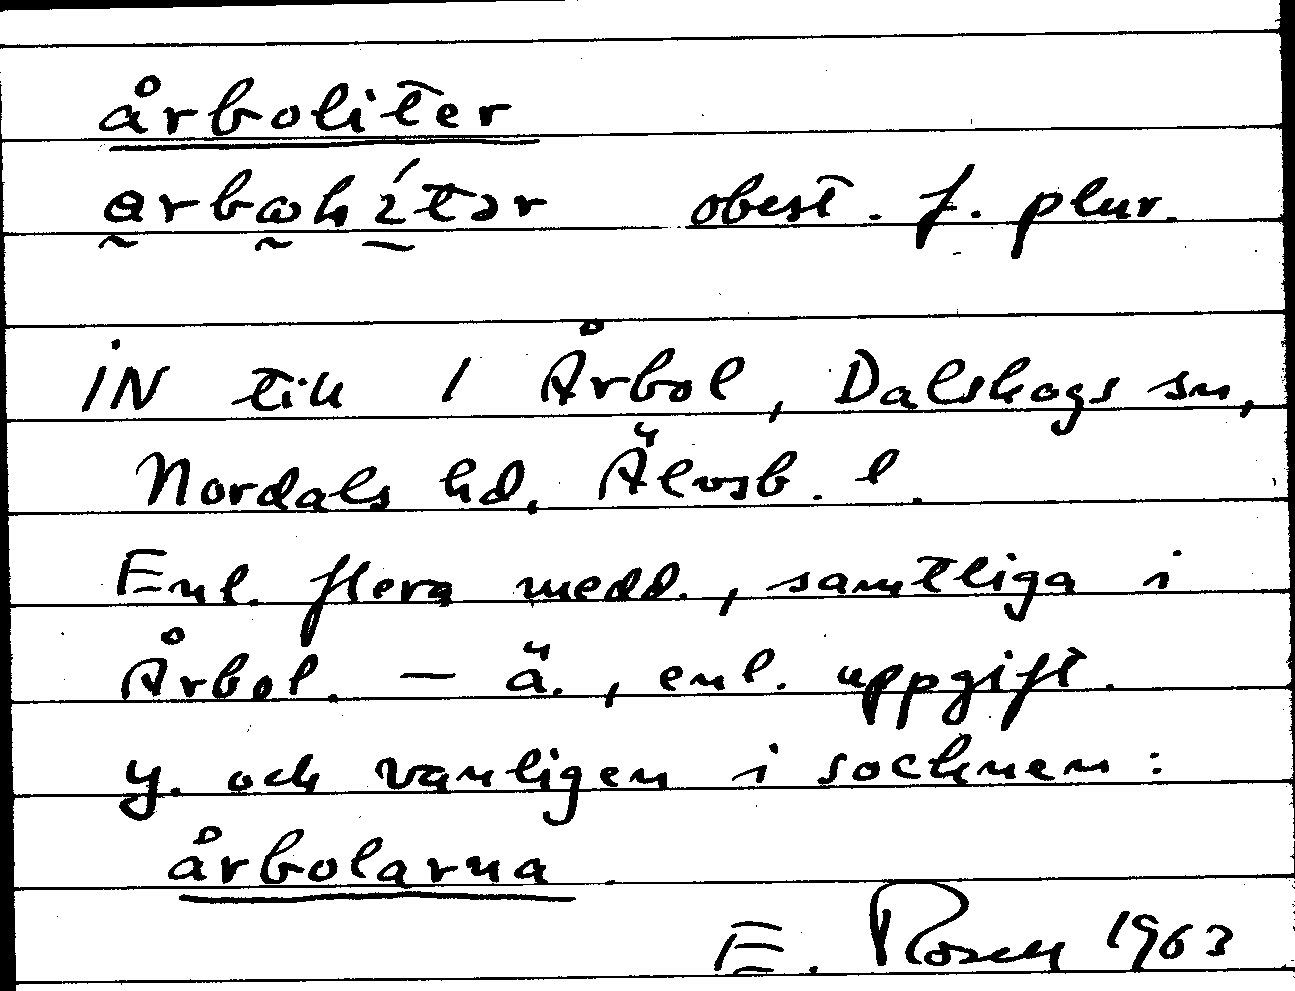 årboliter
obest. f. plur.
iN till 1 Årbol, Dalskogs sn,
Nordals hd. Älvsb. l.
Enl. flera medd., samtliga i
Årbol. — ä., enl. uppgift.
y. och vanligen i socknen:
årbolarna
E. Rosell 1963